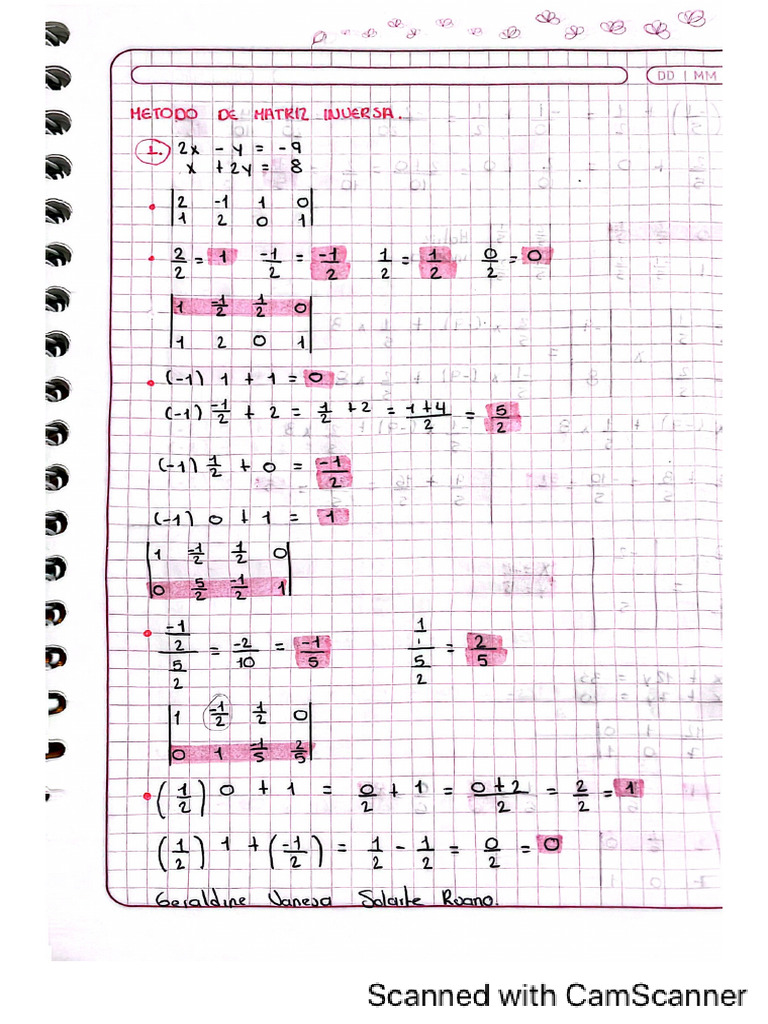 DD | MM
METODO DE MATRIZ INVERSA.
1. 2x - y = -9
x + 2y = 8
2 -1 1 0
1 2 0 1
2/2 = 1 -1/2 = -1/2 1/2 = 1/2 0/2 = 0
1 -1/2 1/2 0
1 2 0 1
(-1) 1 + 1 = 0
(-1) -1/2 + 2 = 1/2 + 2 = 1+4/2 = 5/2
(-1) 1/2 + 0 = -1/2
(-1) 0 + 1 = 1
1 -1/2 1/2 0
0 5/2 -1/2 1
-1/2 / 5/2 = -2/10 = -1/5 1/1 / 5/2 = 2/5
1 -1/2 1/2 0
0 1 -1/5 2/5
(1/2) 0 + 1 = 0/2 + 1 = 0+2/2 = 2/2 = 1
(1/2) 1 + (-1/2) = 1/2 - 1/2 = 0/2 = 0
Geraldine Vanesa Solarte Ruano.
Scanned with CamScanner